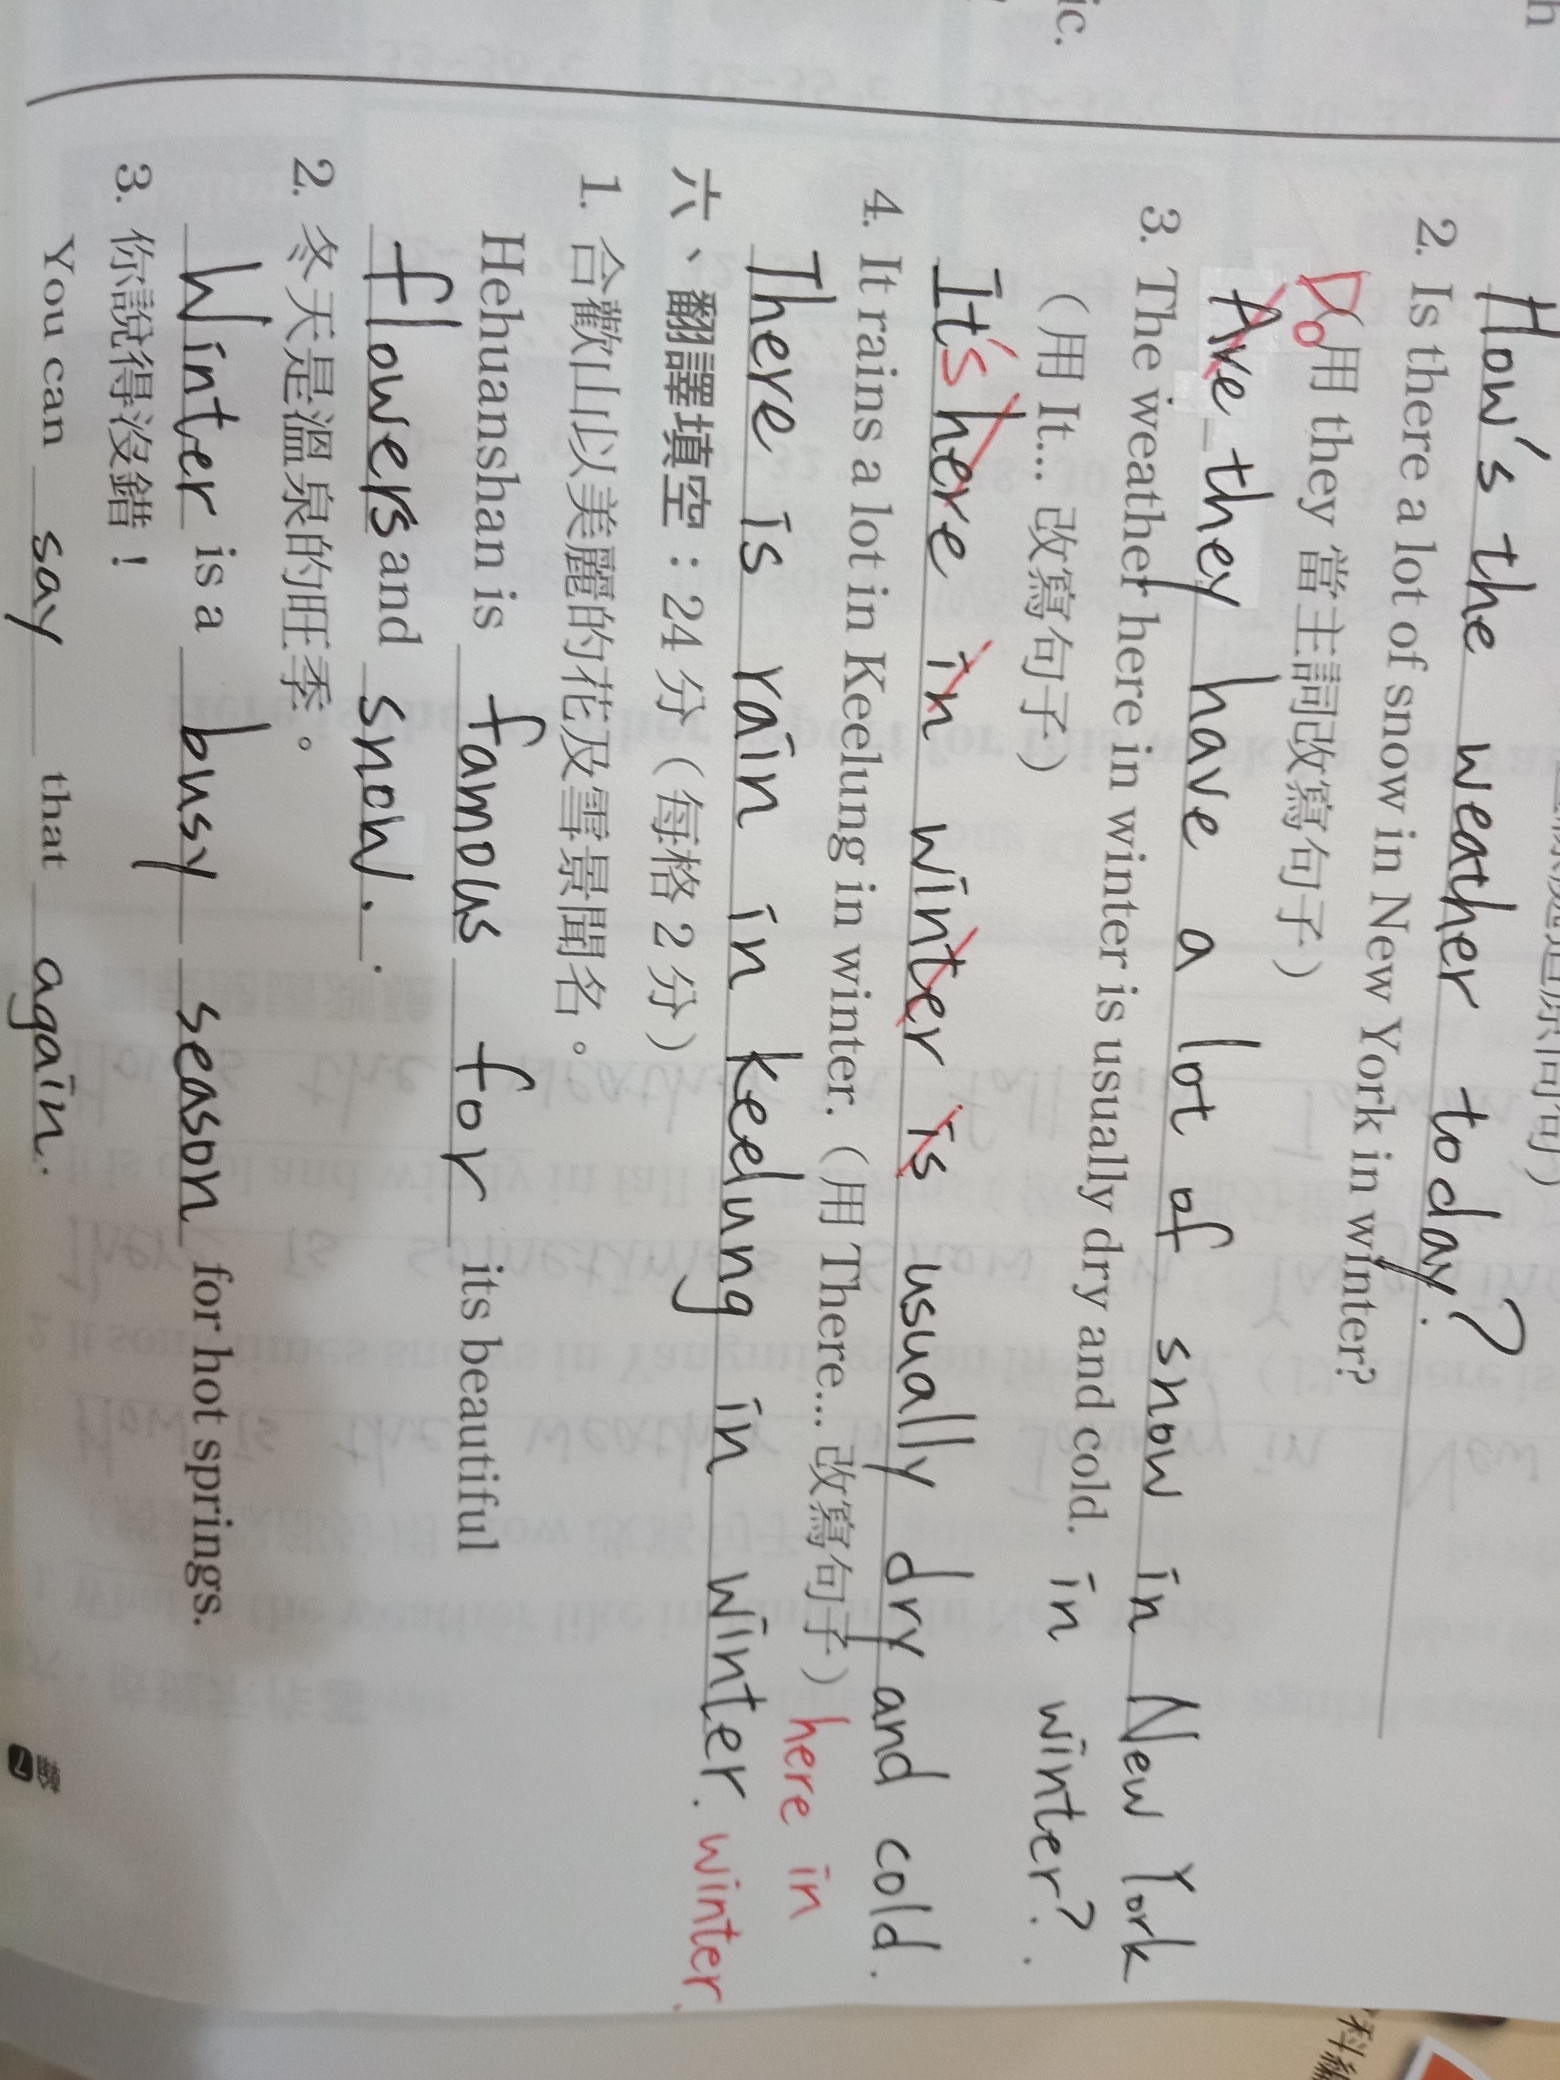 How's the weather today?
2. Is there a lot of snow in New York in winter?
Do (用 they 當主詞改寫句子)
Are they have a lot of snow in New York
in winter?
3. The weather here in winter is usually dry and cold.
(用 It... 改寫句子)
It's here in winter is usually dry and cold.
here in winter.
4. It rains a lot in Keelung in winter. (用 There... 改寫句子)
There is rain in keelung in winter.
六、翻譯填空：24 分（每格 2 分）
1. 合歡山以美麗的花及雪景聞名。
Hehuanshan is famous for its beautiful
flowers and snow.
2. 冬天是溫泉的旺季。
Winter is a busy season for hot springs.
3. 你說得沒錯！
You can say that again.
7
ic.